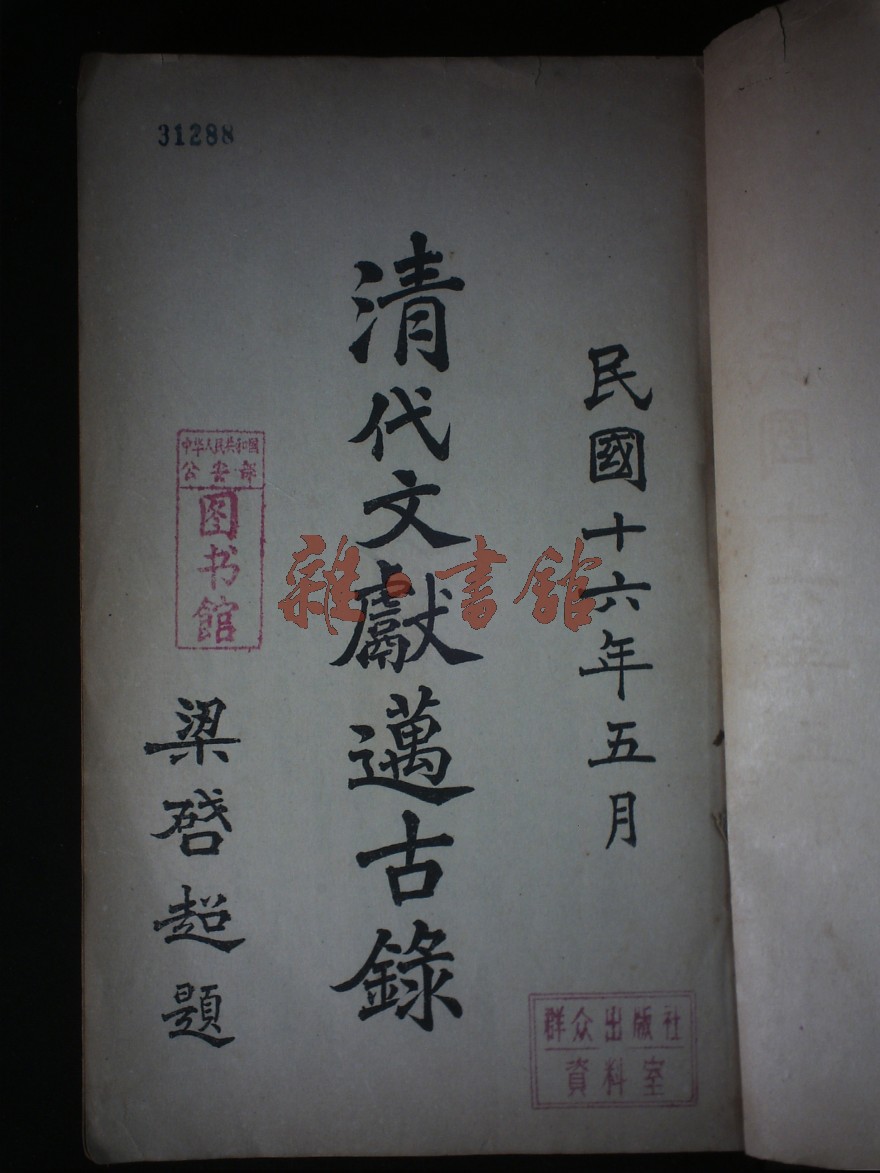 31288
民國十六年五月
清代文獻邁古錄
梁啓超題
中华人民共和国
公安部
图书馆
群众出版社
資料室
雜·書館